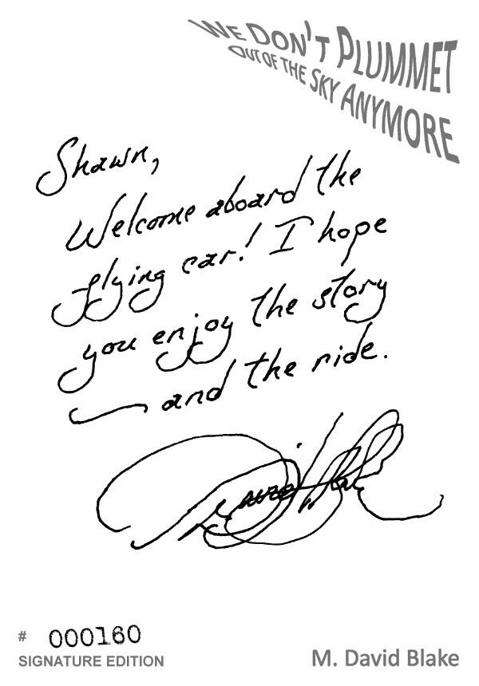 WE DON'T PLUMMET
OUT OF THE SKY ANYMORE
Shawn,
Welcome aboard the
flying car! I hope
you enjoy the story
— and the ride.
# 000160
SIGNATURE EDITION
M. David Blake